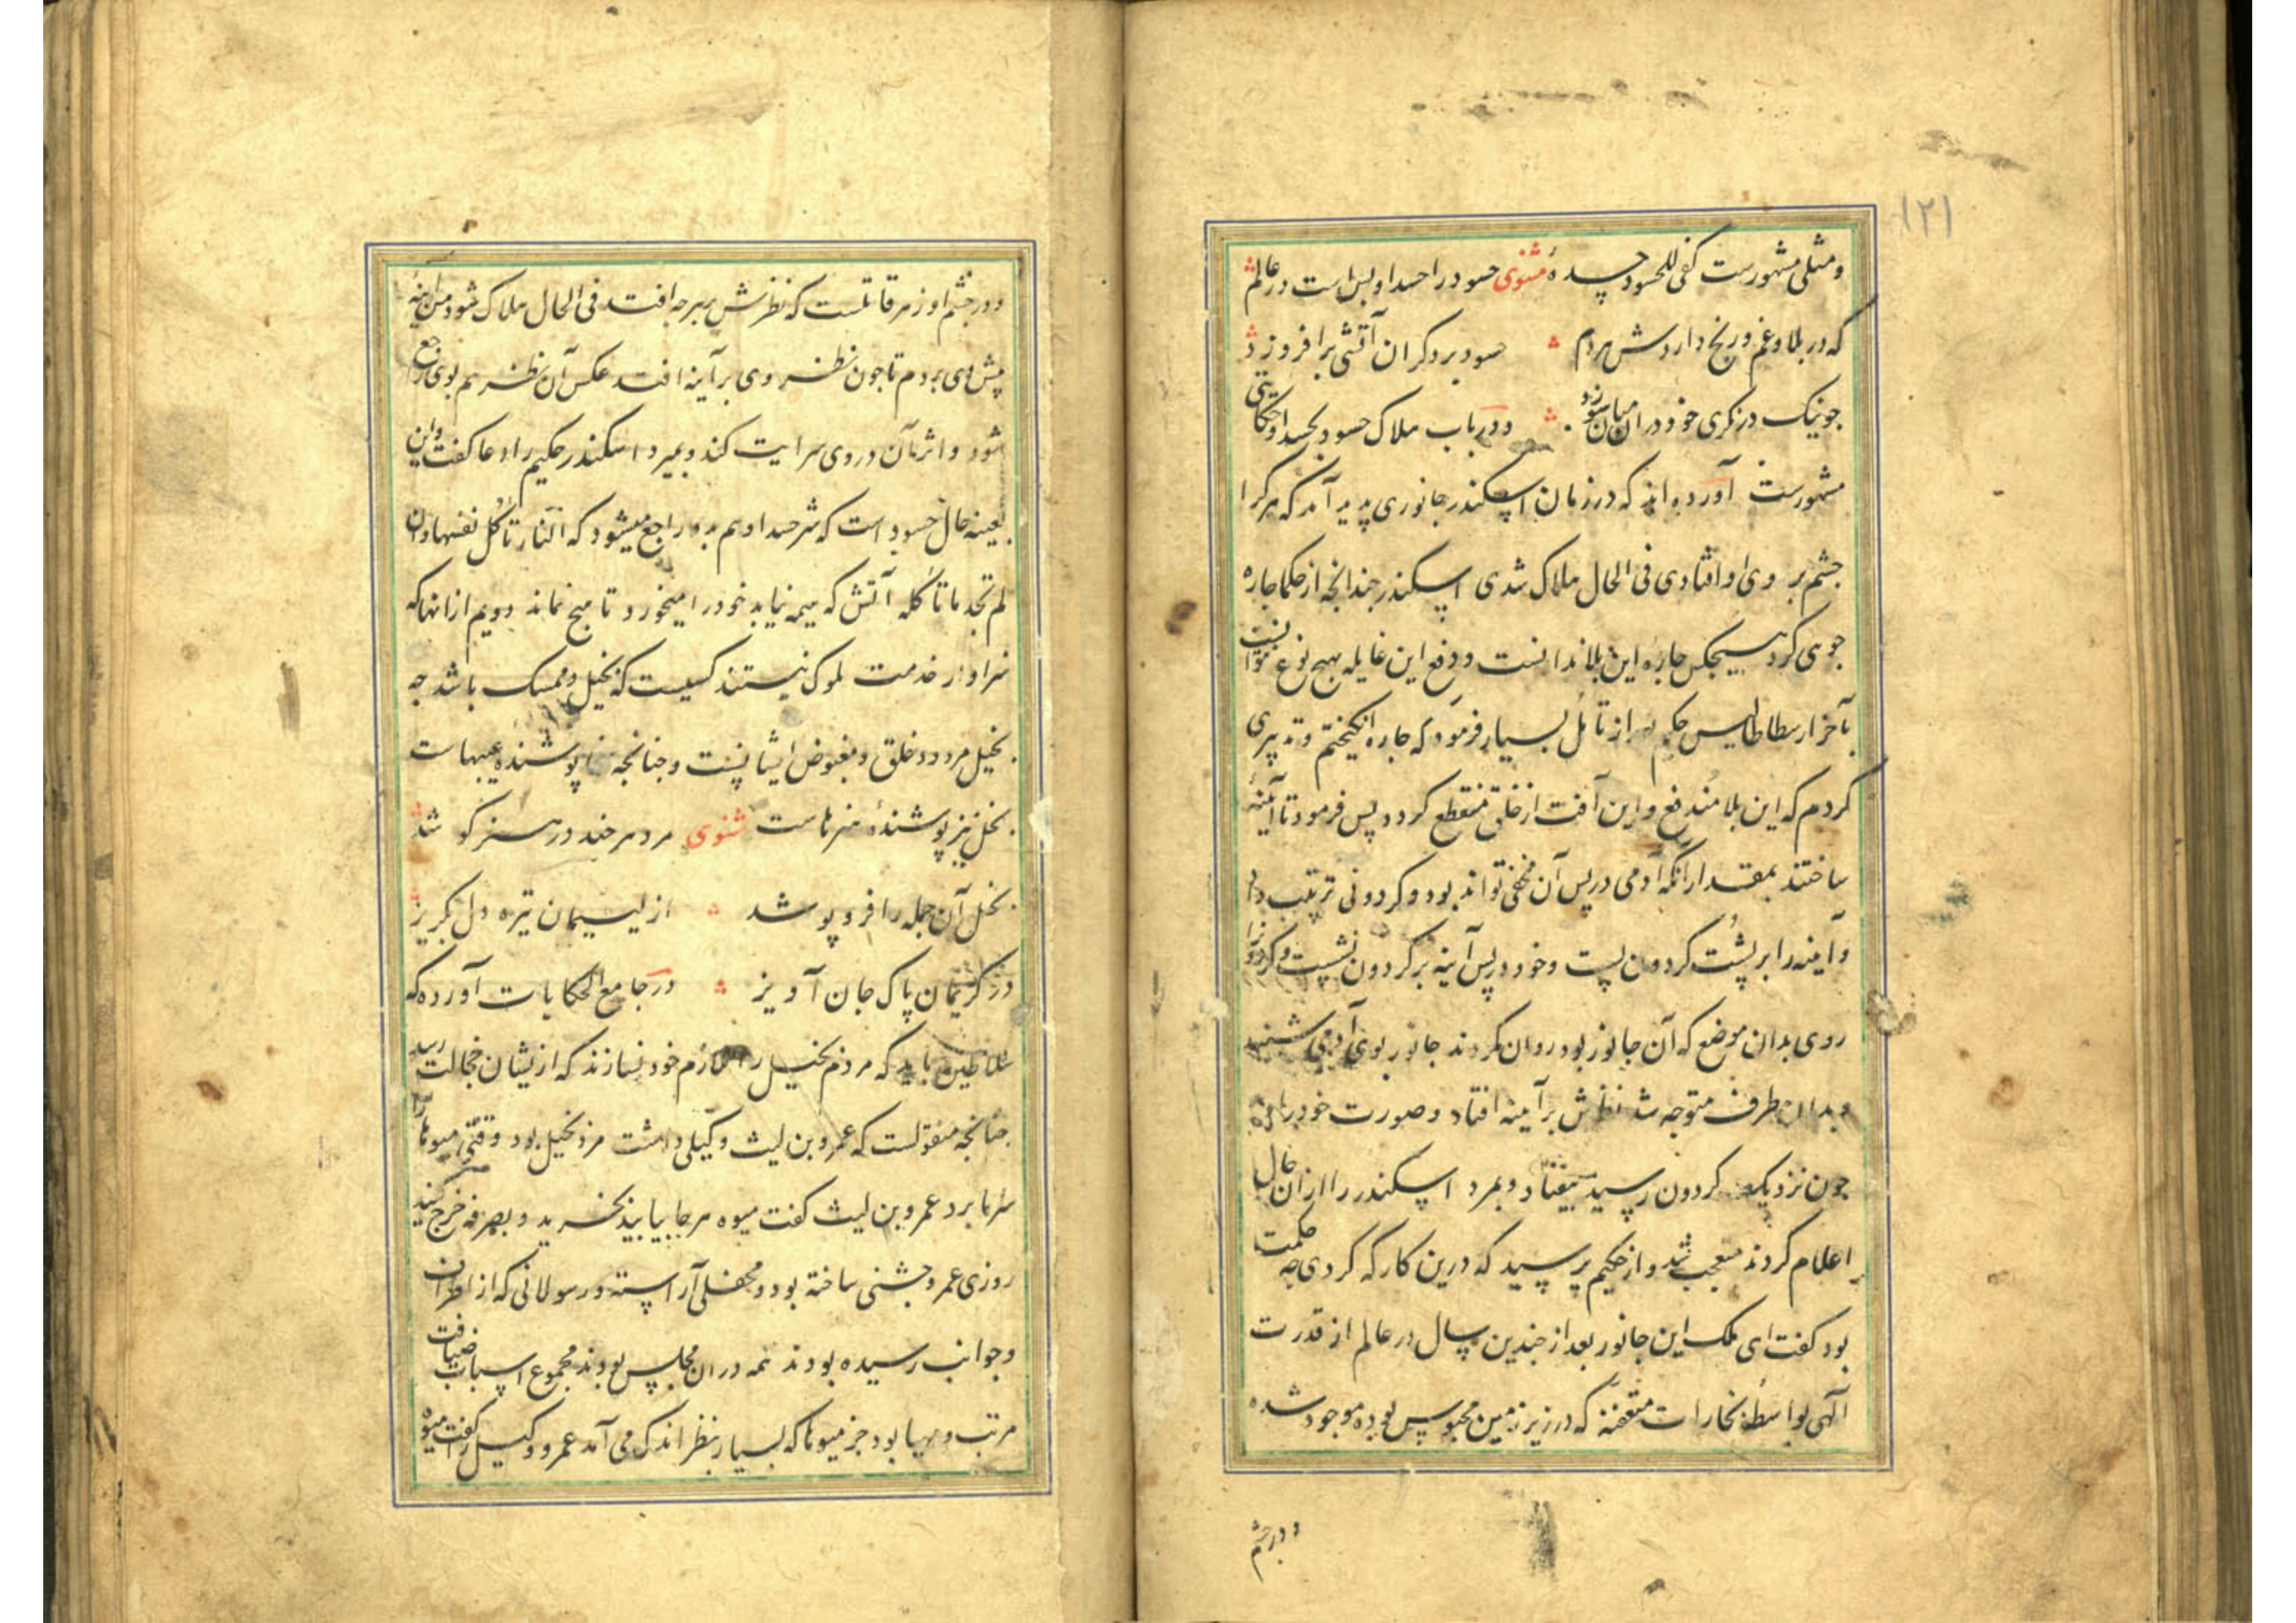 ۱۲۱
ومثلی مشهورست کفی للحسود حسده مثنوی حسود را حسد او بس است در عالم
که در بلا و غم و رنج داردش هردم حسود بر دکران آتشی برافروزد
جو نیک درنکری خود در ان میان سوزد ودر باب هلاک حسود بحسد او حکایتی
مشهورست آورده اند که در زمان اسکندر جانوری پدید آمد که هر کرا
جشم بر وی اوفتادی فی الحال هلاک شدی اسکندر جندانجه از حکما جاره
جویی کرد هیجکس جارهٔ این بلا ندانست ودفع این غایله بهیج نوع نتوانست
بآخر ارسطاطالیس حکیم بعد از تأمل بسیار فرمود که جاره انکیختم و تدبیری
کردم که این بلا مندفع واین آفت از خلق منقطع کردد پس فرمود تا آینهٔ
ساختند بمقدار آنکه آدمی در پس آن مخفی تواند بود و کردونی ترتیب داد
وآینه را بر پشت کردون بست وخود در پس آینه بر کردون نشست و کردون را
روی بدان موضع که آن جانور بود روان کردند جانور بوی آدمی شنید
وبدان طرف متوجه شد نظرش بر آینه افتاد وصورت خود را دید
جون نزدیک کردون رسید بیفتاد وبمرد اسکندر را ازان حال
اعلام کردند متعجب شد واز حکیم پرسید که درین کار که کردی جه حکمت
بود کفت ای ملک این جانور بعد از جندین سال در عالم از قدرت
آلهی بواسطهٔ بخارات متعفنه که در زیر زمین محبوس بوده موجود شده
ودر جشم
ودر جشم او زهر قاتلست که نظرش بهرجه افتد فی الحال هلاک شود من آینهٔ
پیش وی بردم تا جون نظر وی بر آینه افتد عکس آن نظر هم بوی راجع
شود واثر آن در وی سرایت کند وبمیرد اسکندر حکیم را دعا کفت واین
بعینه حال حسود است که شر حسد او هم بدو راجع میشود که النار تأکل نفسها وان
لم تجد ما تأکله آتش که هیمه نیابد خود را میخورد تا هیج نماند دویم از انها که
سزاوار خدمت ملوک نیستند کسیست که بخیل وممسک باشد جه
بخیل مردود خلق ومبغوض ایشانست وجنانجه سخا پوشندهٔ عیبهاست
بخل نیز پوشندهٔ هنرهاست مثنوی مرد هر جند در هنر کوشد
بخل آن جمله را فرو پوشد از لئیمان تیره دل بکریز
در کریمان پاک جان آویز در جامع الحکایات آورده که
سلاطین باید که مردم بخیل را ملازم خود نسازند که از یشان خجالت رسد
جنانجه منقولست که عمرو بن لیث وکیلی داشت مردِ بخیل بود وقتی میوها را
سرما برد عمرو بن لیث کفت میوه هرجا بیابید بخرید وبصرفه خرج کنید
روزی عمرو جشنی ساخته بود ومحفلی آراسته ورسولانی که از اطراف
وجوانب رسیده بودند همه در ان مجلس بودند مجموع اسباب ضیافت
مرتب ومهیا بود جز میوها که بسیار بنظر اندک می آمد عمرو وکیل را کفت میوه